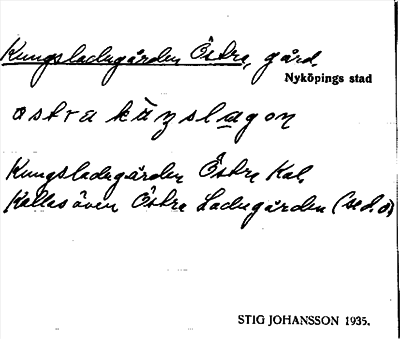 Kungsladugården Östra, gård.
Nyköpings stad
östra kä̀nslagon
Kungsladugården Östra Kal.
Kallas även Östra Ladugården (se d.o)
STIG JOHANSSON 1935.